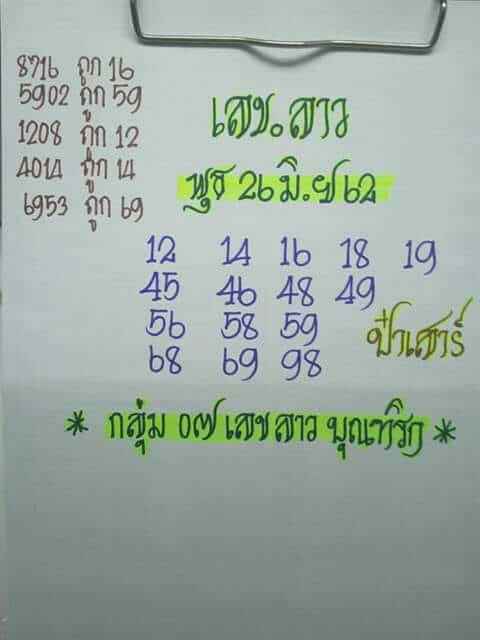 8716 ถูก 16
5902 ถูก 59
1208 ถูก 12
4014 ถูก 14
6953 ถูก 69
เลข.ลาว
พุธ 26 มิ.ย 62
12 14 16 18 19
45 46 48 49
56 58 59
68 69 98
ป๋าเสาร์
* กลุ่ม 07 เลขลาว บุณฑริก *